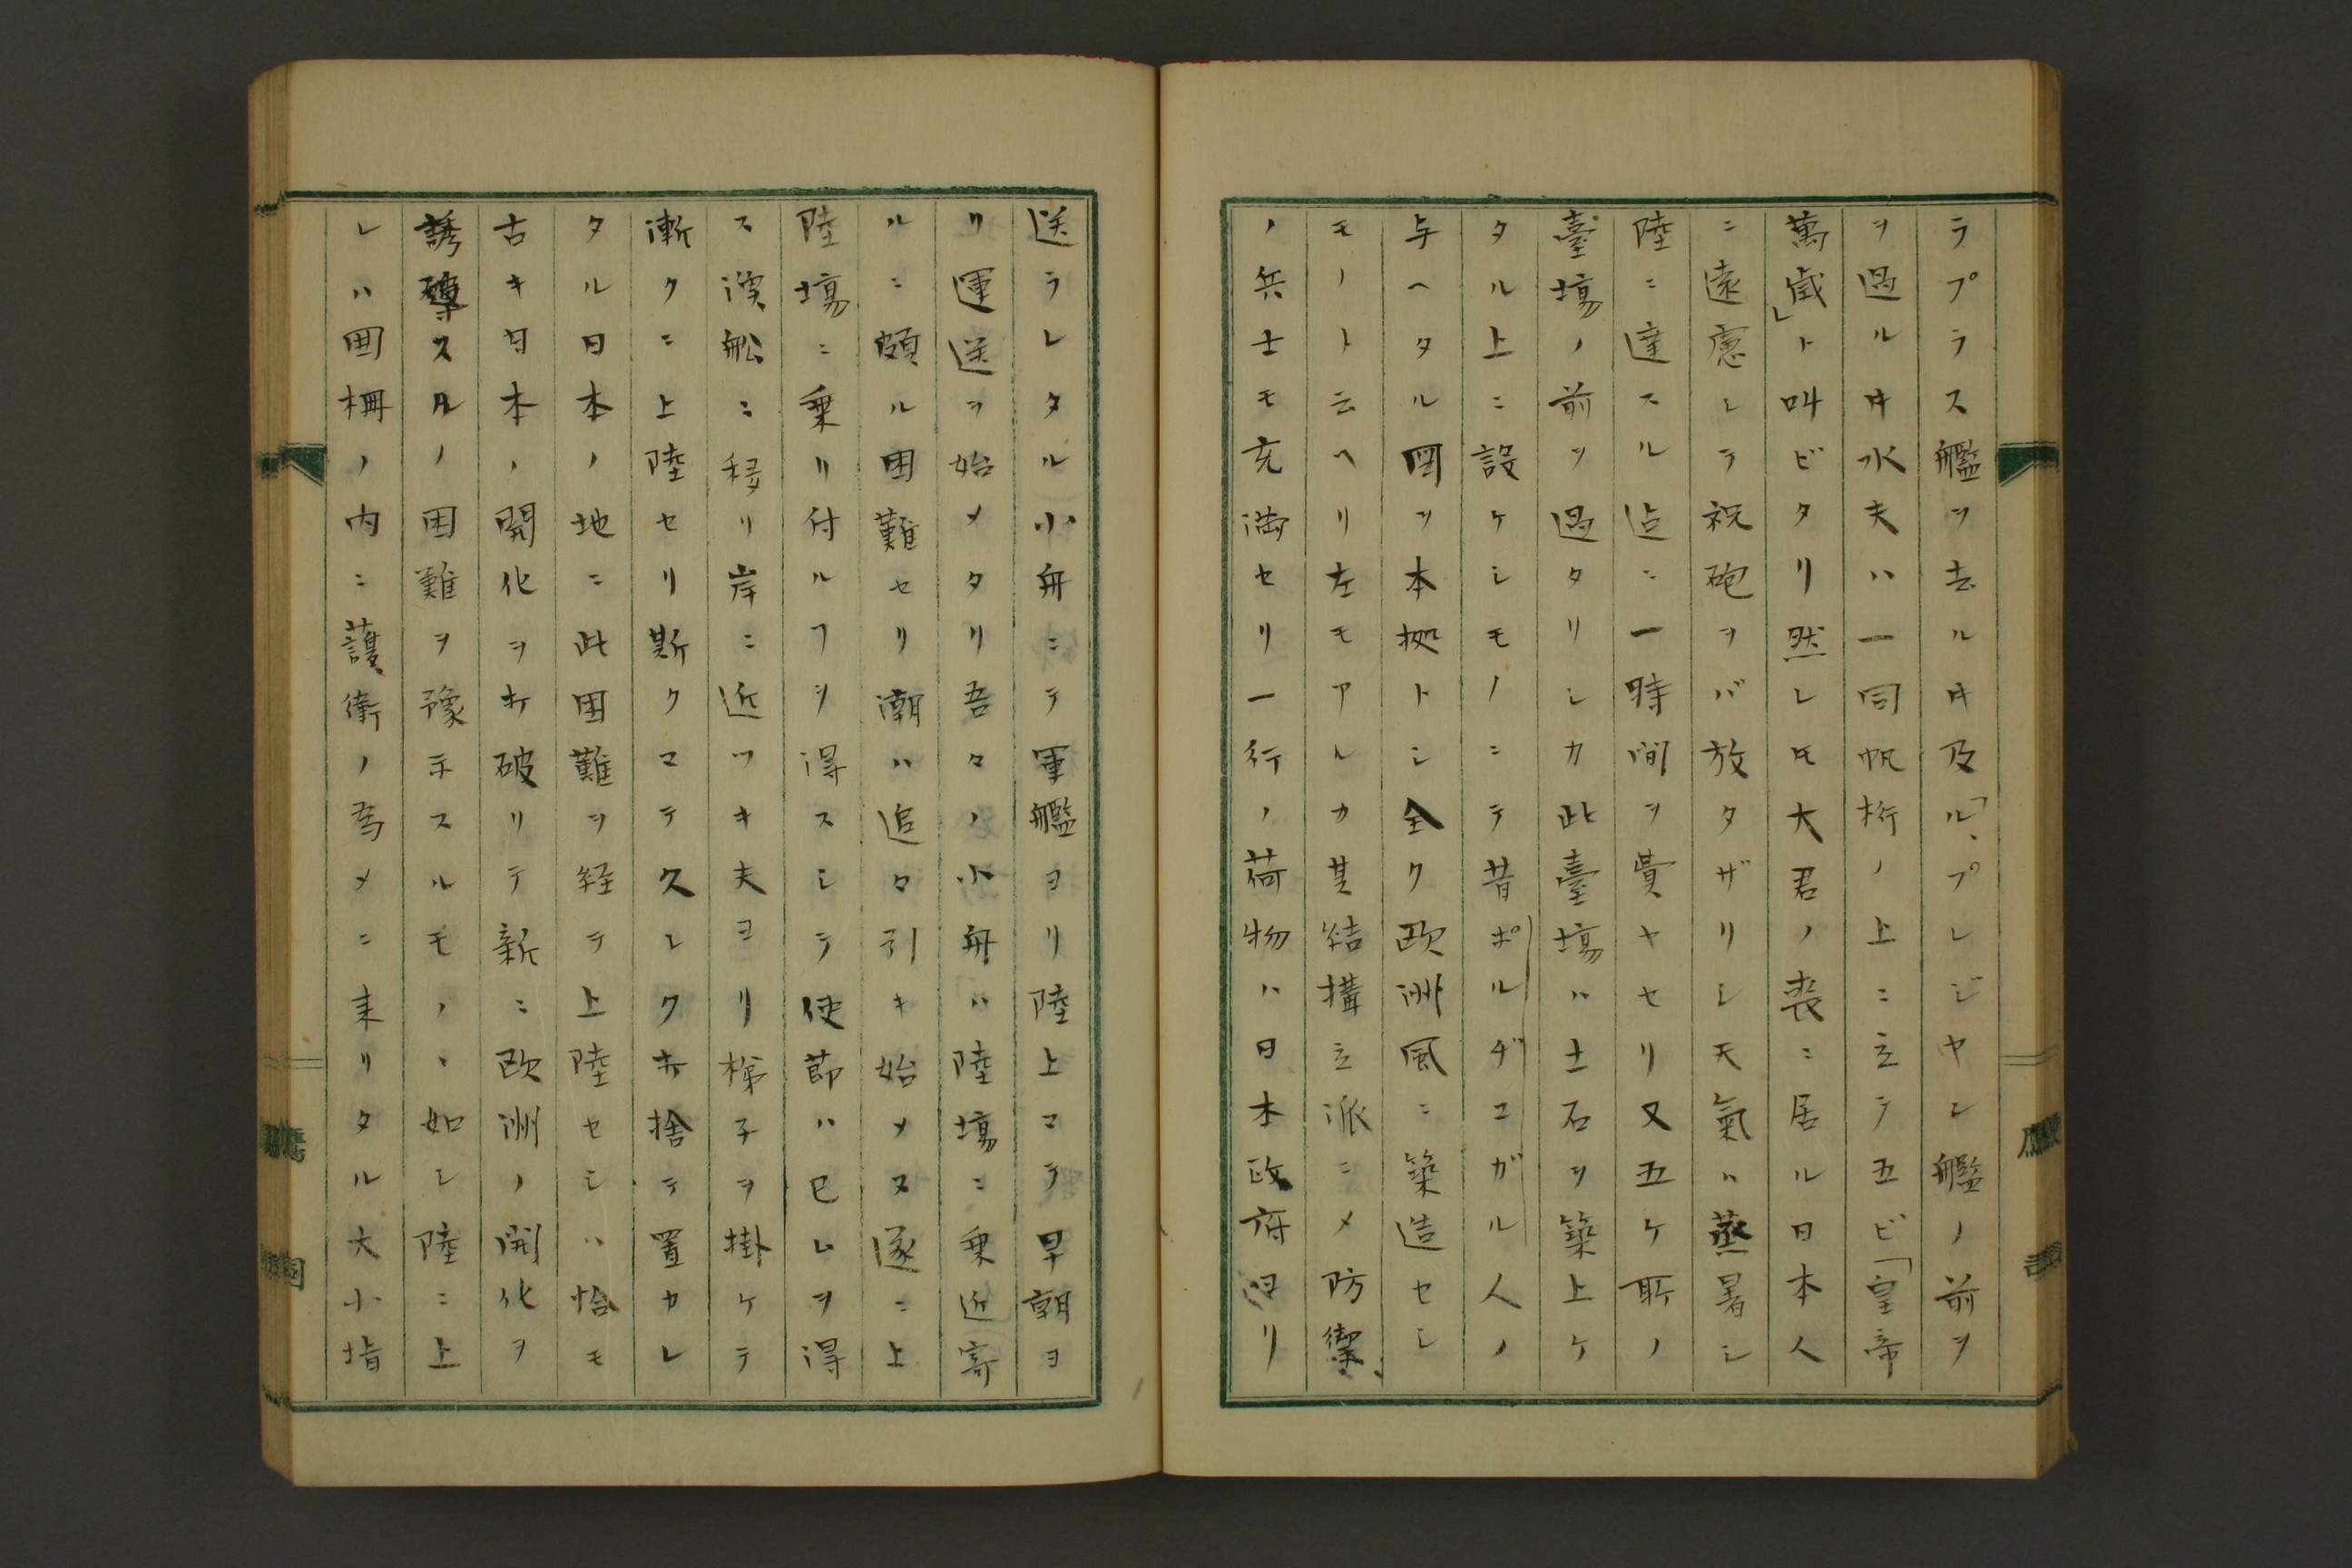 ラプラス艦ヲ去ルヰ及「ル、プレジヤン艦ノ前ヲ
ヲ過ルヰ水夫ハ一同帆桁ノ上ニ立テ五ビ「皇帝
萬歳」ト叫ビタリ然レ𪜈大君ノ喪ニ居ル日本人
ニ遠慮シテ祝砲ヲバ放タザリシ天氣ハ蒸暑シ
陸ニ達スル迠ニ一時間ヲ費ヤセリ又五ケ所ノ
臺場ノ前ヲ過タリシカ此臺場ハ土石ヲ築上ケ
タル上ニ設ケシモノニテ昔ポルヂユガル人ノ
与ヘタル図ヲ本拠トシ全ク欧洲風ニ築造セシ
モノト云ヘリ左モアルカ其結構立派ニメ防禦
ノ兵士モ充満セリ一行ノ荷物ハ日本政府ヨリ
送ラレタル小舟ニテ軍艦ヨリ陸上マテ早朝ヨ
リ運送ヲ始メタリ吾々ノ小舟ハ陸場ニ乗近寄
ルニ頗ル困難セリ潮ハ追々引キ始メヌ遂ニ上
陸場ニ乗リ付ルヿヲ得スシテ使節ハ已ムヲ得
ス漁舩ニ移リ岸ニ近ツキ夫ヨリ梯子ヲ掛ケテ
漸クニ上陸セリ斯クマテ久シク打捨テ置カレ
タル日本ノ地ニ此困難ヲ経テ上陸セシハ恰モ
古キ日本ノ開化ヲ打破リテ新ニ欧洲ノ開化ヲ
誘導スルノ困難ヲ豫示スルモノヽ如シ陸ニ上
レハ囲柵ノ内ニ護衛ノ為メニ来リタル大小指